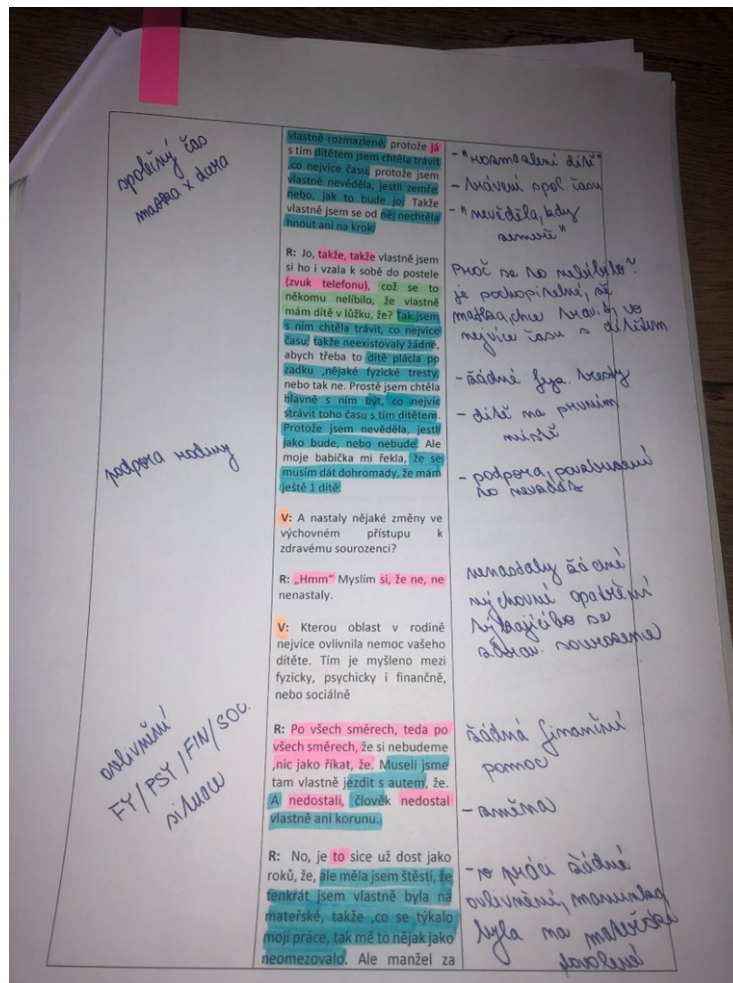 společný čas
matka x dcera
podpora rodiny
ovlivnění
FY/PSY/FIN/SOC.
situace
vlastně rozmazlené, protože já
s tím dítětem jsem chtěla trávit
,co nejvíce času, protože jsem
vlastně nevěděla, jestli zemře
nebo, jak to bude jo. Takže
vlastně jsem se od něj nechtěla
hnout ani na krok.
R: Jo, takže, takže vlastně jsem
si ho i vzala k sobě do postele
(zvuk telefonu), což se to
někomu nelíbilo, že vlastně
mám dítě v lůžku, že? Tak jsem
s ním chtěla trávit, co nejvíce
času, takže neexistovaly žádné,
abych třeba to dítě plácla po
zadku ,nějaké fyzické tresty,
nebo tak ne. Prostě jsem chtěla
hlavně s ním být, co nejvíc
strávit toho času s tím dítětem.
Protože jsem nevěděla, jestli
jako bude, nebo nebude. Ale
moje babička mi řekla, že se
musím dát dohromady, že mám
ještě 1 dítě.
V: A nastaly nějaké změny ve
výchovném přístupu k
zdravému sourozenci?
R: „Hmm“ Myslím si, že ne, ne
nenastaly.
V: Kterou oblast v rodině
nejvíce ovlivnila nemoc vašeho
dítěte. Tím je myšleno mezi
fyzicky, psychicky i finančně,
nebo sociálně
R: Po všech směrech, teda po
všech směrech, že si nebudeme
,nic jako říkat, že. Museli jsme
tam vlastně jezdit s autem, že.
A nedostali, člověk nedostal
vlastně ani korunu.
R: No, je to sice už dost jako
roků, že, ale měla jsem štěstí, že
tenkrát jsem vlastně byla na
mateřské, takže ,co se týkalo
mojí práce, tak mě to nějak jako
neomezovalo. Ale manžel za
- "rozmazlení dítě"
- trávení spol. času
- "nevěděla, kdy
zemře"
Proč se to nelíbilo?
je pochopitelné, že
matka chce trávit, co
nejvíce času s dítětem
- žádné fyz. tresty
- dítě na prvním
místě
- podpora, povzbuzení
to nevzdat
nenastaly žádné
výchovné opatření
týkajícího se
zdrav. sourozence
žádná finanční
pomoc
- směna
- v práci žádné
ovlivnění, maminka
byla na mateřské
dovolené